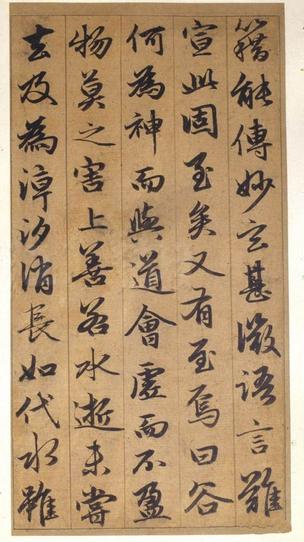 籍能傳妙玄甚微語言難
宣此固至矣又有至焉曰谷
何為神而與道會虛而不盈
物莫之害上善若水逝未嘗
去及為潮汐消長如代水雖